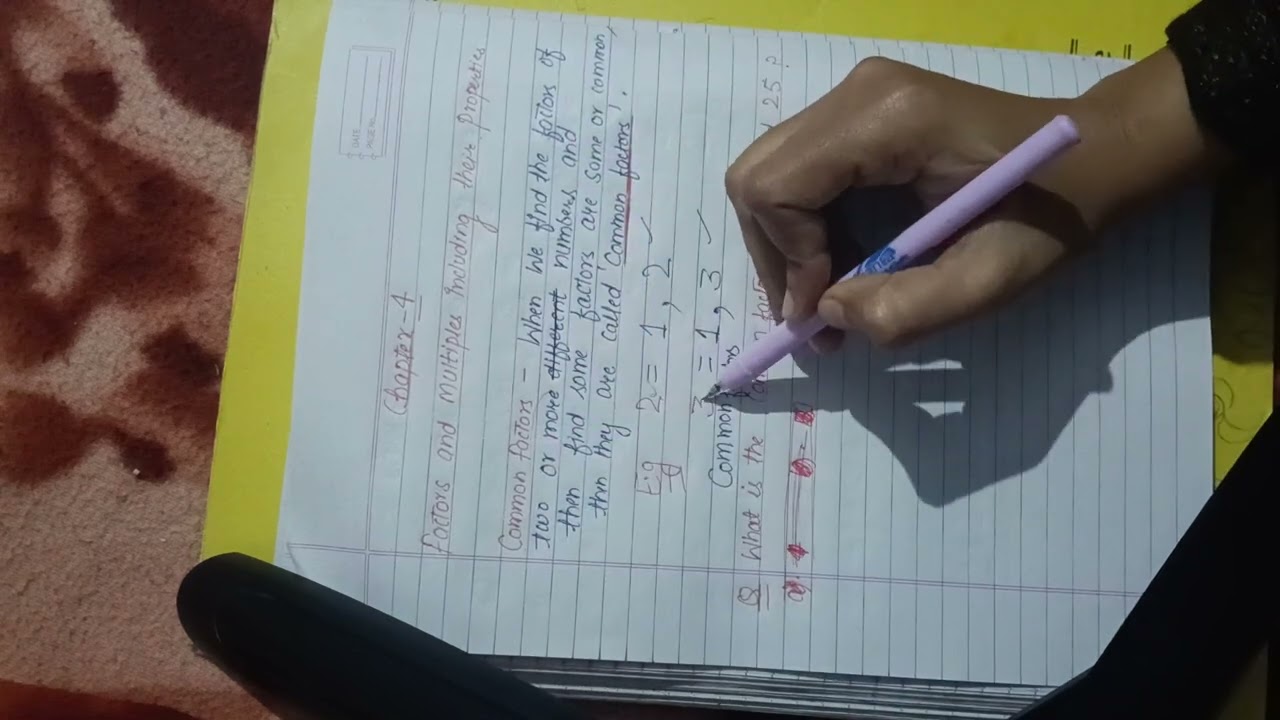 DATE
PAGE NO.
Chapter-4
Factors and multiples including their properties
Common factors - When we find the factors of
two or more different numbers and
then find some factors are some or common,
thin they are called 'Common factors'.
Eig 2 = 1, 2 ✓
3 = 1, 3 ✓
Common
Q What is the 25 ?